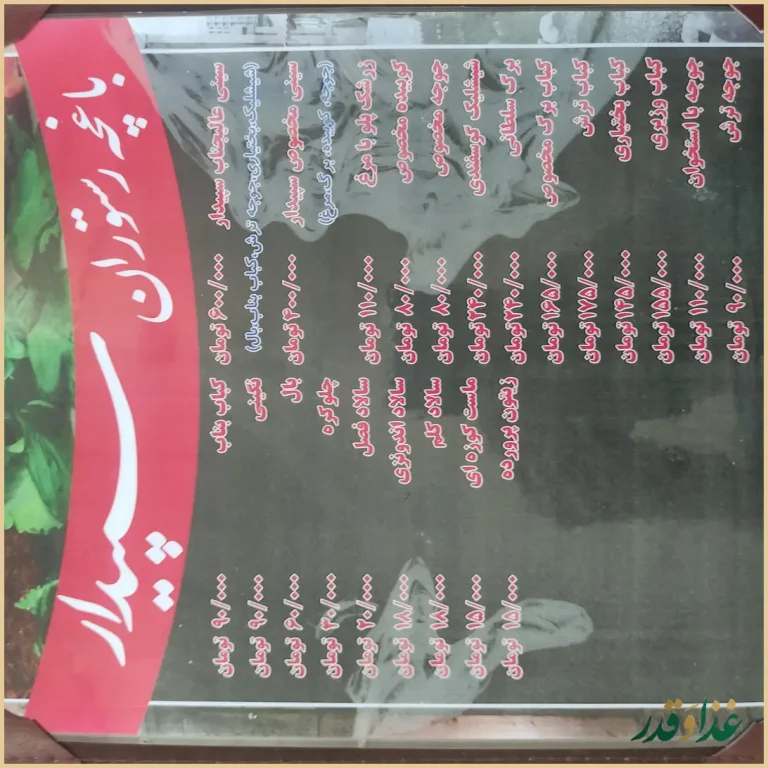 باغچه رستوران
سپیدار
سینی عالیجناب سپیدار ۶۰۰/۰۰۰ تومان
(شیشلیک،بختیاری،جوجه ترش،کباب بناب،بال)
سینی مخصوص سپیدار ۴۰۰/۰۰۰ تومان
(جوجه، کوبیده، برگ،مرغ)
زرشک پلو با مرغ ۱۱۰/۰۰۰ تومان
کوبیده مخصوص ۸۰/۰۰۰ تومان
جوجه مخصوص ۸۰/۰۰۰ تومان
شیشلیک گوسفندی ۲۴۰/۰۰۰ تومان
برگ سلطانی ۲۴۰/۰۰۰ تومان
کباب برگ مخصوص ۱۶۵/۰۰۰ تومان
کباب ترش ۱۷۵/۰۰۰ تومان
کباب بختیاری ۱۴۵/۰۰۰ تومان
کباب وزیری ۱۵۵/۰۰۰ تومان
جوجه با استخوان ۱۱۰/۰۰۰ تومان
جوجه ترش ۹۰/۰۰۰ تومان
کباب بناب ۹۰/۰۰۰ تومان
نگینی ۹۰/۰۰۰ تومان
بال ۶۰/۰۰۰ تومان
چلو کره ۳۰/۰۰۰ تومان
سالاد فصل ۲۰/۰۰۰ تومان
سالاد اندونزی ۱۸/۰۰۰ تومان
سالاد کلم ۱۸/۰۰۰ تومان
ماست کوزه ای ۱۵/۰۰۰ تومان
زیتون پرورده ۱۵/۰۰۰ تومان
غذا و قدر